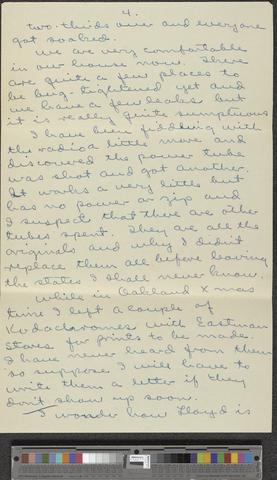 4.
two-thirds over and everyone
got soaked.
We are very comfortable
in our house now. There
are quite a few places to
be bug-tightened yet and
we have a few leaks but
it is really quite sumptuous
I have been fiddling with
the radio a little more and
discovered the power tube
was shot and got another.
It works a very little but
has no power or zip and
I suspect that there are other
tubes spent. They are all the
originals and why I didn't
replace them all before leaving
the states I shall never know.
While in Oakland Xmas
time I left a couple of
Kodachromes with Eastman
Stores for prints to be made.
I have never heard from them
so suppose I will have to
write them a letter if they
don't show up soon.
I wonder how Lloyd is